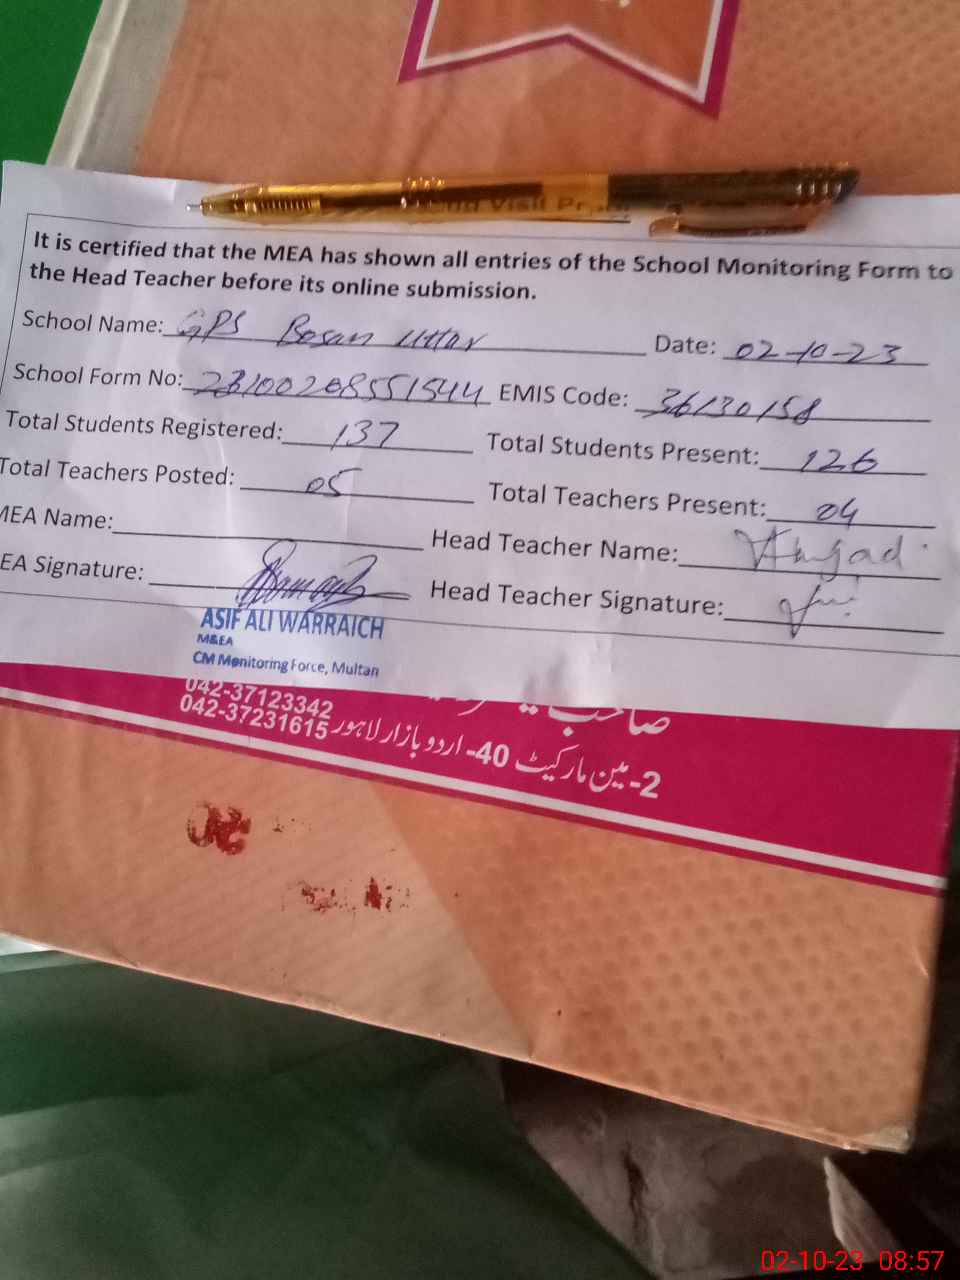 It is certified that the MEA has shown all entries of the School Monitoring Form to
the Head Teacher before its online submission.
School Name: GPS Bosan Uttar Date: 02-10-23
School Form No: 23100208551544 EMIS Code: 36130158
Total Students Registered: 137 Total Students Present: 126
Total Teachers Posted: 05 Total Teachers Present: 04
MEA Name: Head Teacher Name: Amjad
EA Signature: Head Teacher Signature:
ASIF ALI WARRAICH
M&EA
CM Monitoring Force, Multan
042-37123342
042-37231615
2-مین مارکیٹ 40-اردو بازار لاہور
02-10-23 08:57